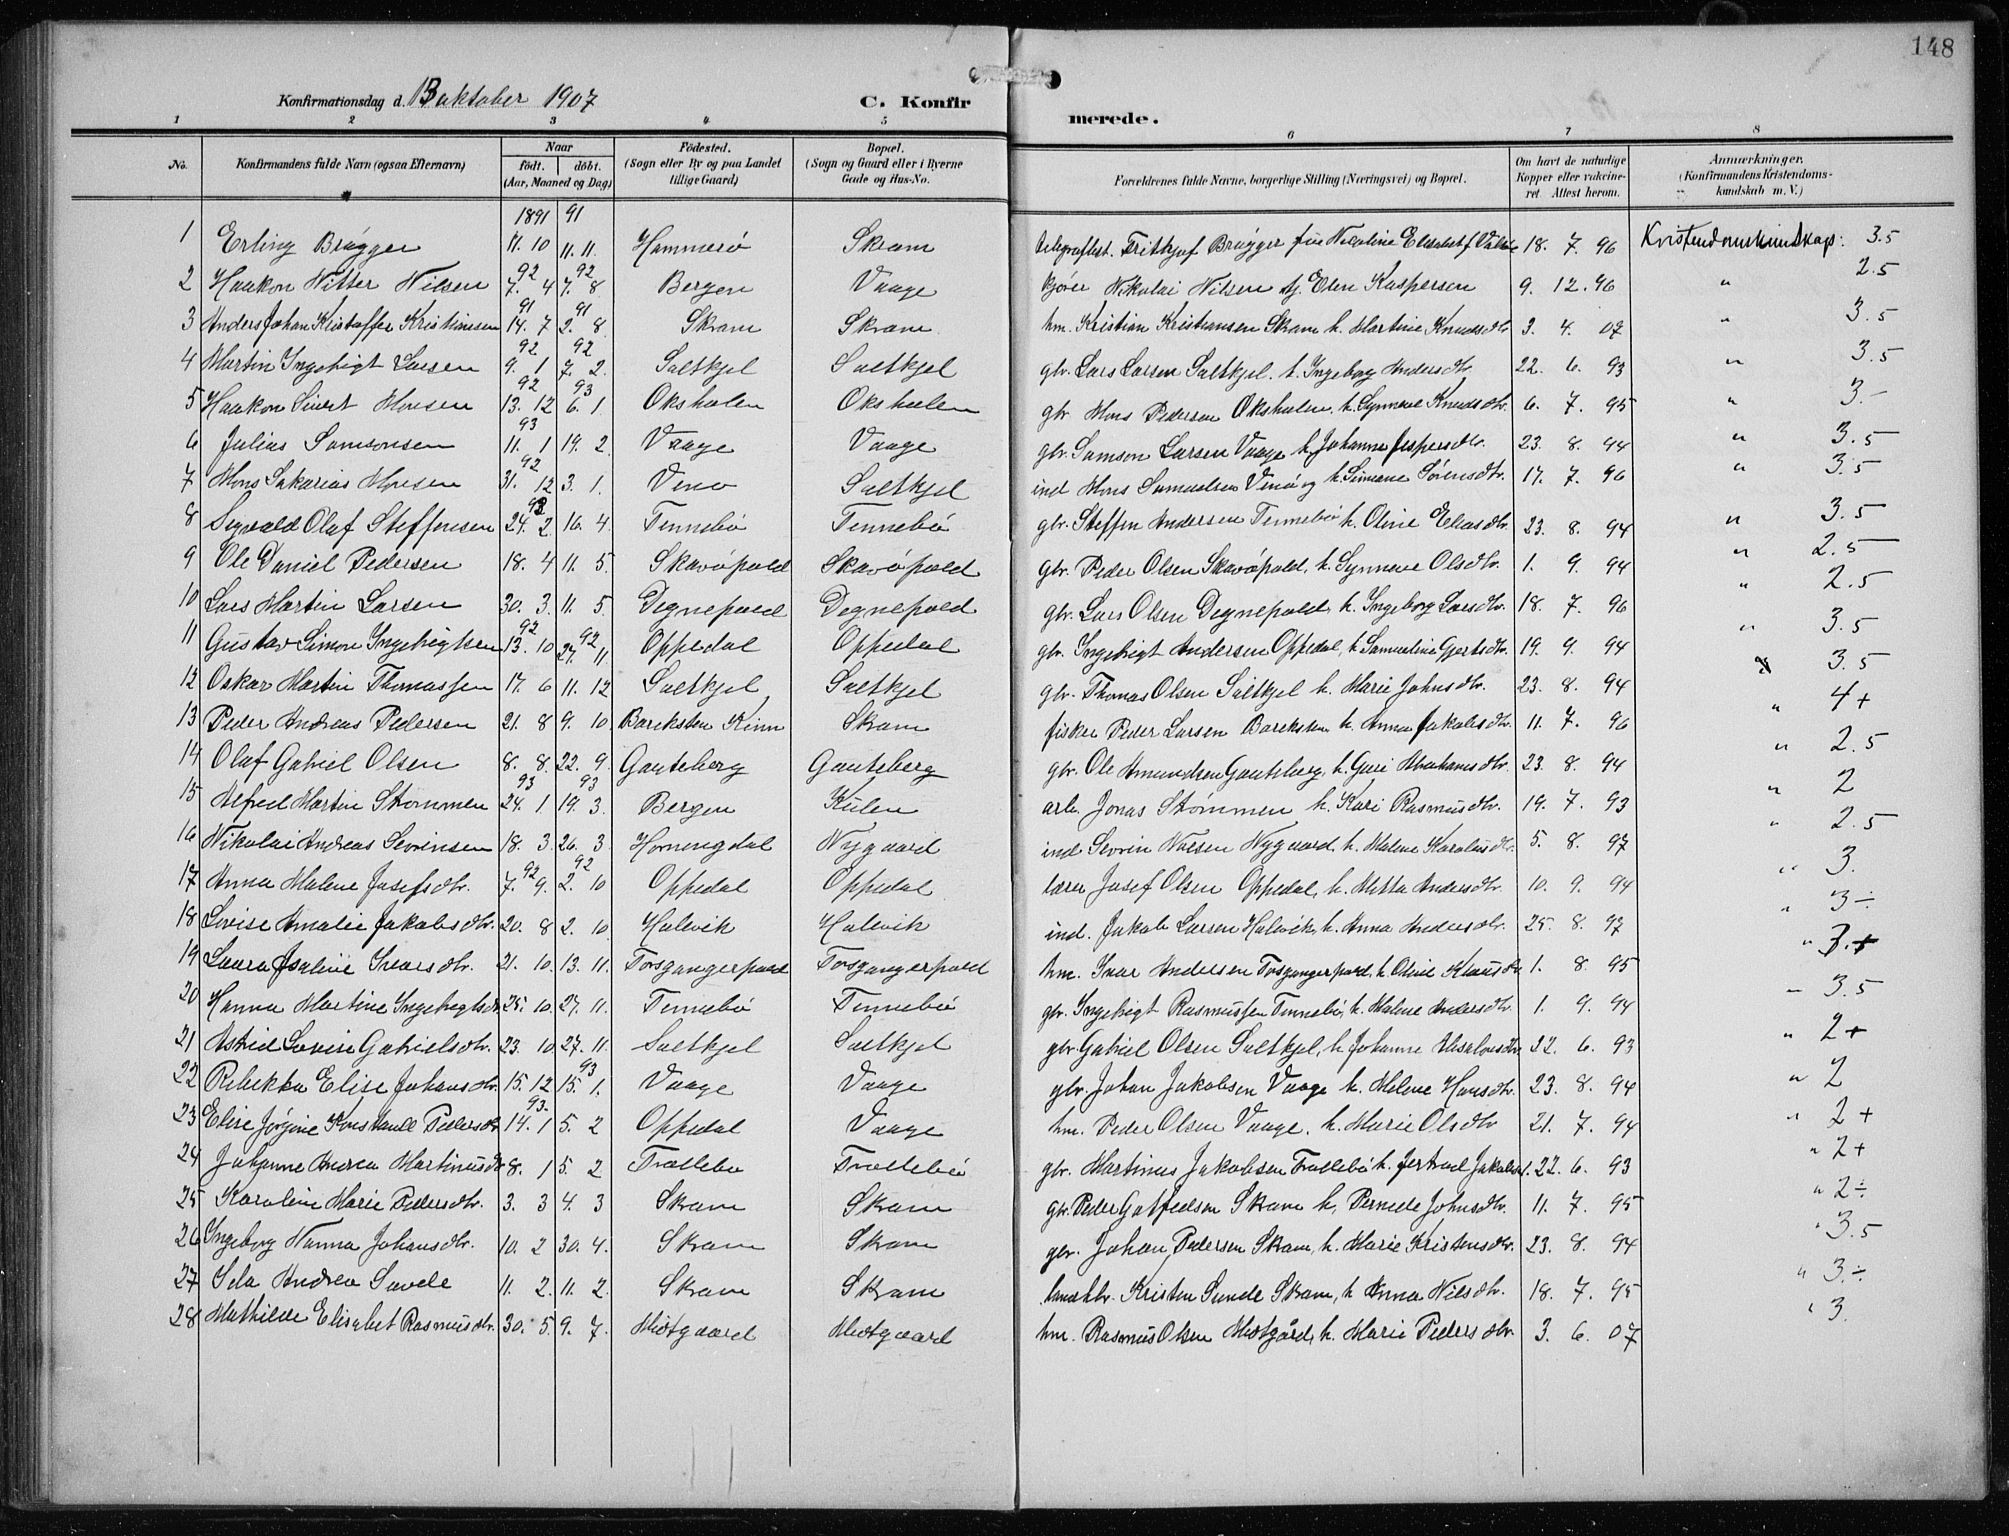 148
Konfirmationsdag d. 13 oktober 1907
C. Konfirmerede.
1 2 3 4 5 6 7 8
No. | Konfirmandens fulde Navn (ogsaa Efternavn) | Naar født. døbt. (Aar, Maaned og Dag) | Födested. (Sogn eller By og paa Landet tillige Gaard) | Bopæl. (Sogn og Gaard eller i Byerne Gade og Hus-No. | Forældrenes fulde Navne, borgerlige Stilling (Næringsvei) og Bopæl. | Om havt de naturlige Kopper eller vaccineret Attest herom. | Anmærkninger. (Konfirmandens Kristendomskundskab m. V.)
1891 91
1 Erling Brügger 11. 10 11. 11. Hammerö Skram Fritkjof Brügger 18. 7. 96 Kristendomskundskap: 3.5
92 92
2 Haakon Nitter Nilsen 7. 4 7. 8 Bergen Vaage kjører Nikolai Nilsen Elen Kaspersen 9. 12. 96 " 2.5
91 91
3 Anders Johan Kristoffer Kristiansen 14. 7 2. 8. Skram Skram hm. Kristian Kristiansen Skram h. Martine Knudsdtr 3. 4. 07 " 3.5
92 92
4 Martin Ingebrigt Larsen 9. 1 7. 2. Saltkjel Saltkjel gbr. Lars Larsen Saltkjel. h. Ingeborg Andersdtr 22. 6. 93 " 3.5
92 93
5 Haakon Sivert Monsen 13. 12 6. 1. Oksholen Oksholen gbr Mons Pedersen Oksholen, h. Synneve Knudsdtr. 6. 7. 95 " 3.-
93
6 Julius Samsonsen 11. 1 19. 2. Vaage Vaage gbr. Samson Larsen Vaage h. Johanne Jespersdtr. 23. 8. 94 " 3.5
92
7 Mons Sakarias Monsen 31. 12 3. 1. Saltkjel ind Mons Samuelsen h. Simeane Sørensdtr. 17. 7. 96 " 3.5
93
8 Sigvald Olaf Steffensen 24. 2. 16. 4. Tennebö Tennebö gbr. Steffen Andersen Tennebö h. Oline Eliasdtr. 23. 8. 94 " 3.5
9 Ole Daniel Pedersen 18. 4 11. 5. Skavöpold Skavöpold gbr. Peder Olsen Skavöpold, h. Synneve Olsdtr. 1. 9. 94 " 2.5
10 Lars Martin Larsen 30. 3. 11. 5 Degnepold Degnepold gbr. Lars Olsen Degnepold, h. Ingeborg Larsdtr. 18. 7. 96 " 2.5
92 92
11 Gustav Simon Ingebrigtsen 13. 10 27. 11 Oppedal Oppedal gbr. Ingebrigt Andersen Oppedal, h. Samueline Gjertsdtr. 19. 9. 94 " 3.5
12 Oskar Martin Thomassen 17. 6 11. 12 Saltkjel Saltkjel gbr. Thomas Olsen Saltkjel h. Marie Johnsdtr. 23. 8. 94 3.5
13 Peder Andreas Pedersen 21. 8 9. 10 Bareksten Kinn Skram fisker Peder Larsen Bareksten h. Anna Jakobsdtr. 11. 7. 96 " 4+
14 Olaf Gabriel Olsen 8. 8. 22. 9. Gauteberg Gauteberg gbr. Ole Amundsen Gauteberg, h. Guri Abrahamsdtr. 23. 8. 94 " 2.5
93 93
15 Alfred Martin Strømmen 24. 1 19. 3. Bergen Kulen arb. Jonas Strømmen h. Kari Rasmusdtr. 19. 7. 93 " 2
16 Nikolai Andreas Severinsen 18. 3. 26. 3 Hornengdal Nygaard ind Severin Nygaard, h. Malene Karolusdtr. 5. 8. 97 " 2.5
92 92
17 Anna Malene Josefsdtr. 7. 9. 2. 10 Oppedal Oppedal lærer Josef Olsen Oppedal, h. Mitta Andersdtr. 10. 9. 94 " 3.
18 Lovise Amalie Jakobsdtr. 20. 8 2. 10. Halvik Halvik ind. Jakob Larsen Halvik, h. Anna Andersdtr. 25. 8. 97 " 3÷
19 Laura Jsaline Ivarsdtr. 21. 10. 13. 11. Torsgangerpold Torsgangerpold hm. Ivar Andersen Torsgangerpold, h. Oline Klausdtr 1. 8. 95 " 3.+
20 Hanna Martine Ingebrigtsdtr 25. 10. 27. 11. Tennebö Tennebö gbr. Ingebrigt Rasmussen Tennebö, h. Malene Andersdtr. 1. 9. 94 " 3.5
21 Astrid Lovise Gabrielsdtr. 23. 10 27. 11. Saltkjel Saltkjel gbr. Gabriel Olsen Saltkjel, h. Johanne Absalonsdtr. 22. 6. 93 " 2+
93
22 Rebekka Elise Johansdtr. 15. 12 15. 1. Vaage Vaage gbr. Johan Jakobsen Vaage h. Malene Hansdtr. 23. 8. 94 " 2
93.
23 Elise Jørgine Konstanse Pedersdtr 14. 1 5. 2 Oppedal Vaage hm. Peder Olsen Vaage. h. Marie Olsdtr 21. 7. 94 " 2+
24 Johanne Andrea Martinusdtr 8. 1 5. 2 Trollebö Trollebö gbr. Martinus Jakobsen Trollebö h. Jertrud Jakobsd. 22. 6. 93 " 2+
25 Karoline Marie Pedersdtr. 3. 3 4. 3 Skram Skram gbr. Peder Gotfredsen Skram h. Pernele Johnsdtr. 11. 7. 95 " 2÷
26 Ingeborg Hanna Johansdtr. 10. 2 30. 4. Skram Skram gbr. Johan Pedersen Skram, h. Marie Kristensdtr. 23. 8. 94 " 3.5
27 Andrea Sunde 11. 2. 11. 2. Skram Skram Kristen Sunde Skram, h. Anna Nilsdtr. 18. 7. 95 " 3.÷
28 Mathilde Elisabet Rasmusdtr. 30. 5. 9. 7. Midtgaard Midtgaard hm. Rasmus Olsen Midtgård, h. Marie Pedersdtr. 3. 6. 07 " 3.